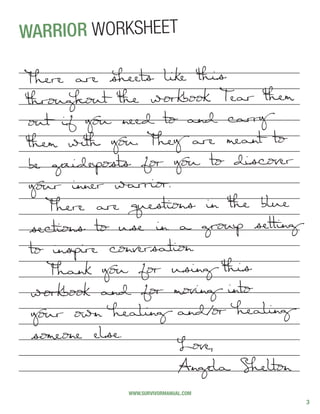 WARRIOR WORKSHEET
There are sheets like this
throughout the workbook Tear them
out if you need to and carry
them with you They are meant to
be guideposts for you to discover
your inner warrior.
There are questions in the blue
sections to use in a group setting
to inspire conversation
Thank you for using this
workbook and for moving into
your own healing and/or healing
someone else
Love,
Angela Shelton
WWW.SURVIVORMANUAL.COM
3